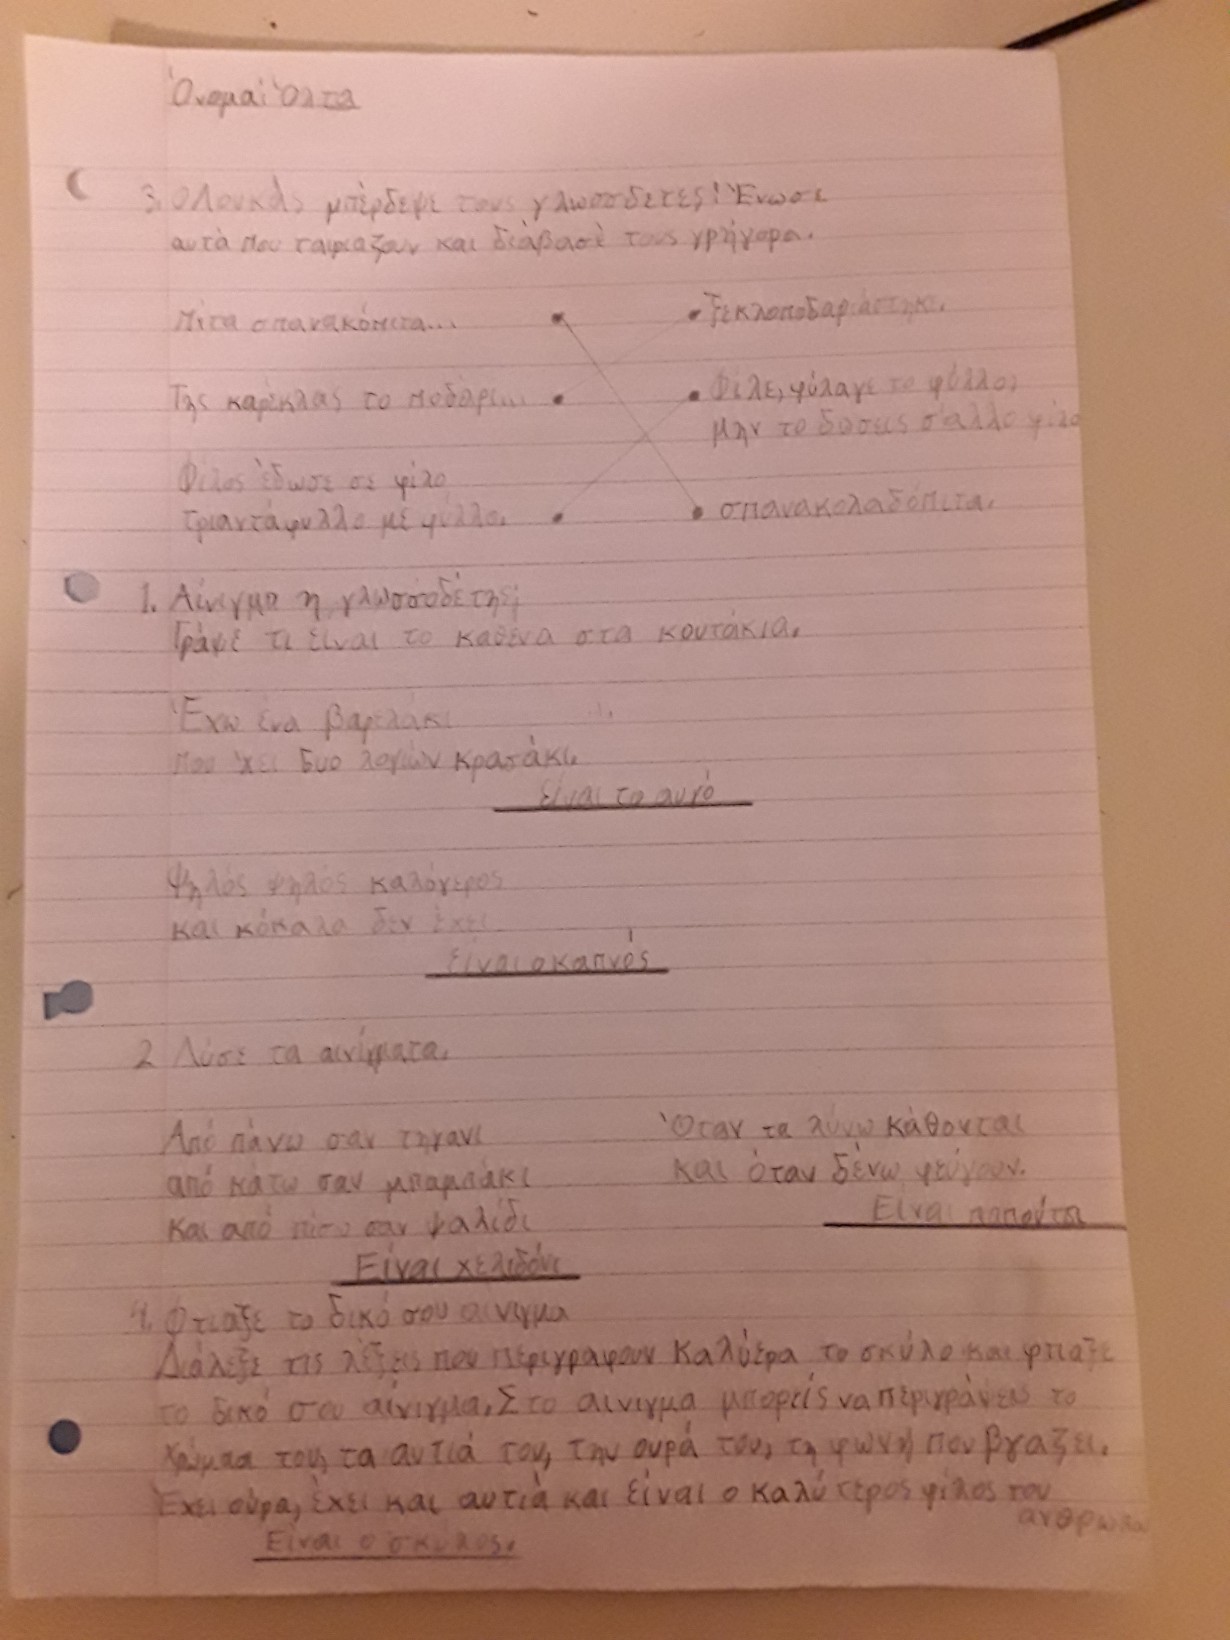 Όνομα: Όλγα
3. Ο Λουκάς μπέρδεψε τους γλωσσδετες! Ένωσε
αυτά που ταιριαζουν και διάβασέ τους γρήγορα.
Πίτα σπανακόπιτα... ξεκλοποδαριάστηκε.
Της καρέκλας το ποδάρι... Φίλε, φύλαγε το φύλλο,
μην το δώσεις σ'άλλο φίλο
Φίλος έδωσε σε φίλο
τριαντάφυλλο με φύλλο. σπανακολαδόπιτα.
1. Αίνιγμα η γλωσσοδέτης;
Γράψε τι είναι το καθένα στα κουτάκια.
Έχω ένα βαρελάκι
που 'χει δυο λογιών κρασάκι.
είναι το αυγό
Ψηλός ψηλός καλόγερος
και κόκαλα δεν έχει
είναι ο καπνός
2 Λύσε τα αινίγματα.
Από πάνω σαν τηγάνι
από κάτω σαν μπαμπάκι
και από πίσω σαν ψαλίδι
Είναι χελιδόνι
Όταν τα λύνω κάθονται
και όταν δένω φεύγουν.
Είναι παπούτσι
4. Φτιαξε το δικό σου αινιγμα
Διάλεξε τις λέξεις που περιγραφουν καλύτερα το σκύλο και φτιαξε
το δικό σου αίνιγμα. Στο αινιγμα μπορείς να περιγράψεις το
χρώμα του, τα αυτιά του, την ουρά του, τη φωνή που βγαζει.
Έχει ουρα, έχει και αυτιά και είναι ο καλύτερος φίλος του
ανθρωπου
Είναι ο σκυλος.